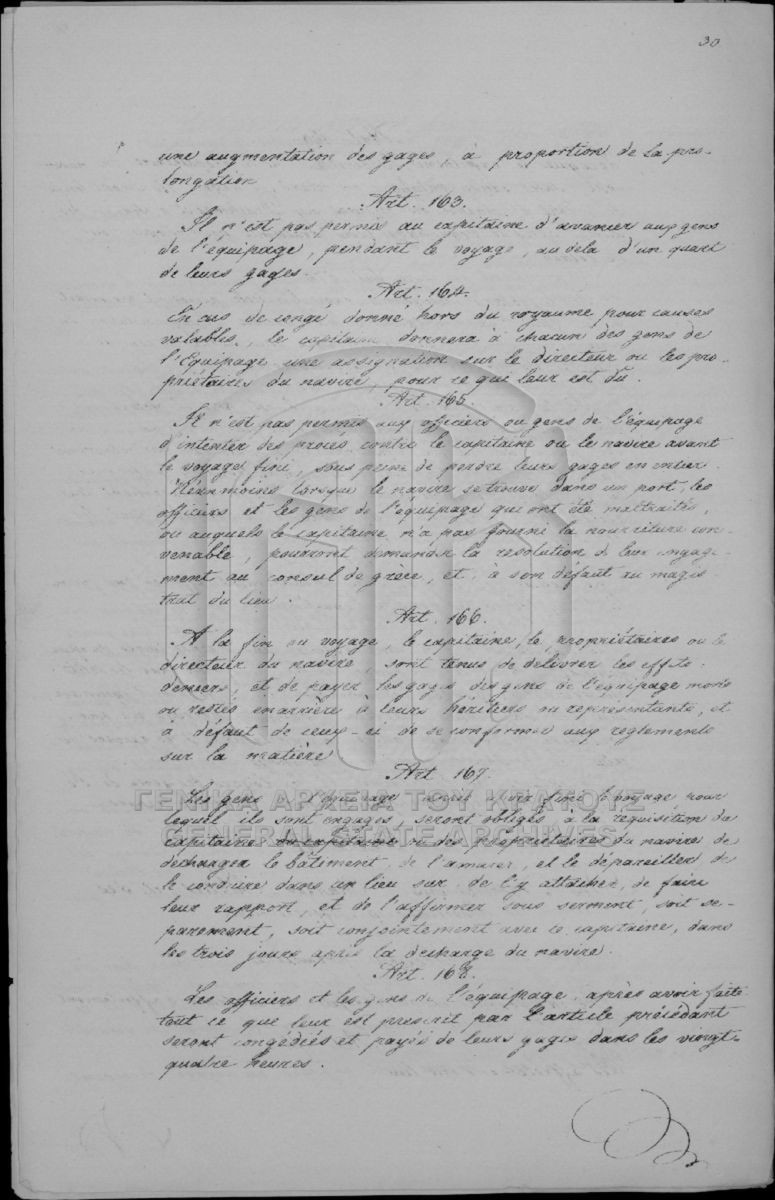 30
une augmentation des gages, à proportion de la pro-
longation
Art. 163.
Il n'est pas permis au capitaine d'avancer aux gens
de l'équipage, pendant le voyage, au dela d'un quart
de leurs gages.
Art. 164.
En cas de congé donné hors du royaume pour causes
valables, le capitaine donnera à chacun des gens de
l'Equipage une assignation sur le directeur ou les pro-
priétaires du navire, pour ce que leur est du.
Art. 165.
Il n'est pas permis aux officiers ou gens de l'équipage
d'intenter des procès contre le capitaine ou le navire avant
le voyage fini, sous peine de perdre leurs gages en entier.
Néanmoins lorsque le navire se trouve dans un port, les
officiers et les gens de l'equipage qui ont été maltraités,
ou auquels le capitaine n'a pas fourni la nourriture con-
venable, pourront demander la resolution de leur engage-
ment au consul de grèce, et à son défaut au magis
trat du lieu.
Art. 166.
A la fin du voyage, le capitaine, le propriétaires ou le
directeur du navire, sont tenus de délivrer les effets,
deniers, et de payer les gages des gens de l'équipage morts
ou restés en arrière à leurs héritiers ou représentants, et
à défaut de ceux-ci de se conformer aux reglements
sur la matière
Art. 167.
ΓΕΝΙΚΑ ΑΡΧΕΙΑ ΤΟΥ ΚΡΑΤΟΥΣ
Les gens d'équipage après avoir fini le voyage pour
lequel ils sont engagés, seront obligés à la requisition du
GENERAL STATE ARCHIVES
capitaine ou capitaine ou des propriétaires du navire de
décharger le bâtiment, de l'amarer, et le dépareiller de
le conduire dans un lieu sur de l'y attacher, de faire
leur rapport, et de l'affirmer sous serment, soit se-
parement, soit conjointement avec le capitaine, dans
les trois jours après la decharge du navire.
Art. 168.
Les officiers et les gens de l'équipage, après avoir faite
tout ce que leur est prescrit par l'article précédant
seront congédiés et payés de leurs gages dans les vingt-
quatre heures.